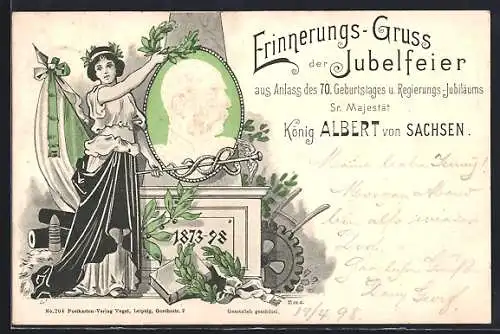 Erinnerungs-Gruss
der Jubelfeier
aus Anlass des 70. Geburtstages u. Regierungs-Jubiläums
Sr. Majestät
König ALBERT von SACHSEN.
Meine liebe Jenny!
Morgen Abend
bin
Dein Georg.
19/4. 98.
1873-98
No. 704 Postkarten-Verlag Vogel, Leipzig, Goethestr. 7
Gesetzlich geschützt.